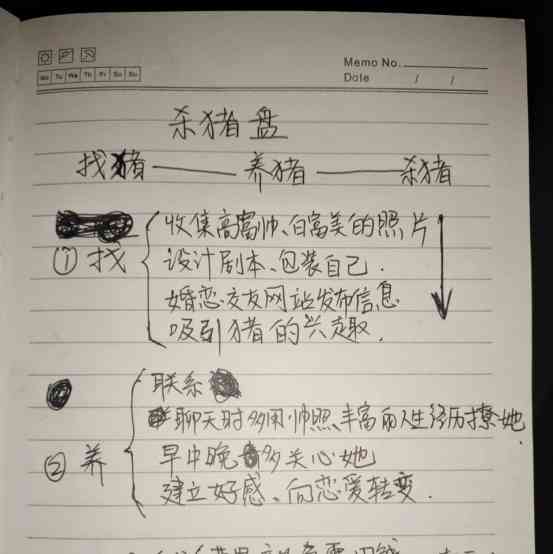 Memo No.
Mo Tu We Th Fr Sa Su
Date / /
杀猪盘
找猪 —— 养猪 —— 杀猪
收集高富帅、白富美的照片
① 找
设计剧本、包装自己.
婚恋交友网站发布信息
吸引猪的兴趣.
联系
聊天时多用帅照、丰富的人生经历撩她.
② 养
早中晚多关心她
建立好感、向恋爱转变.